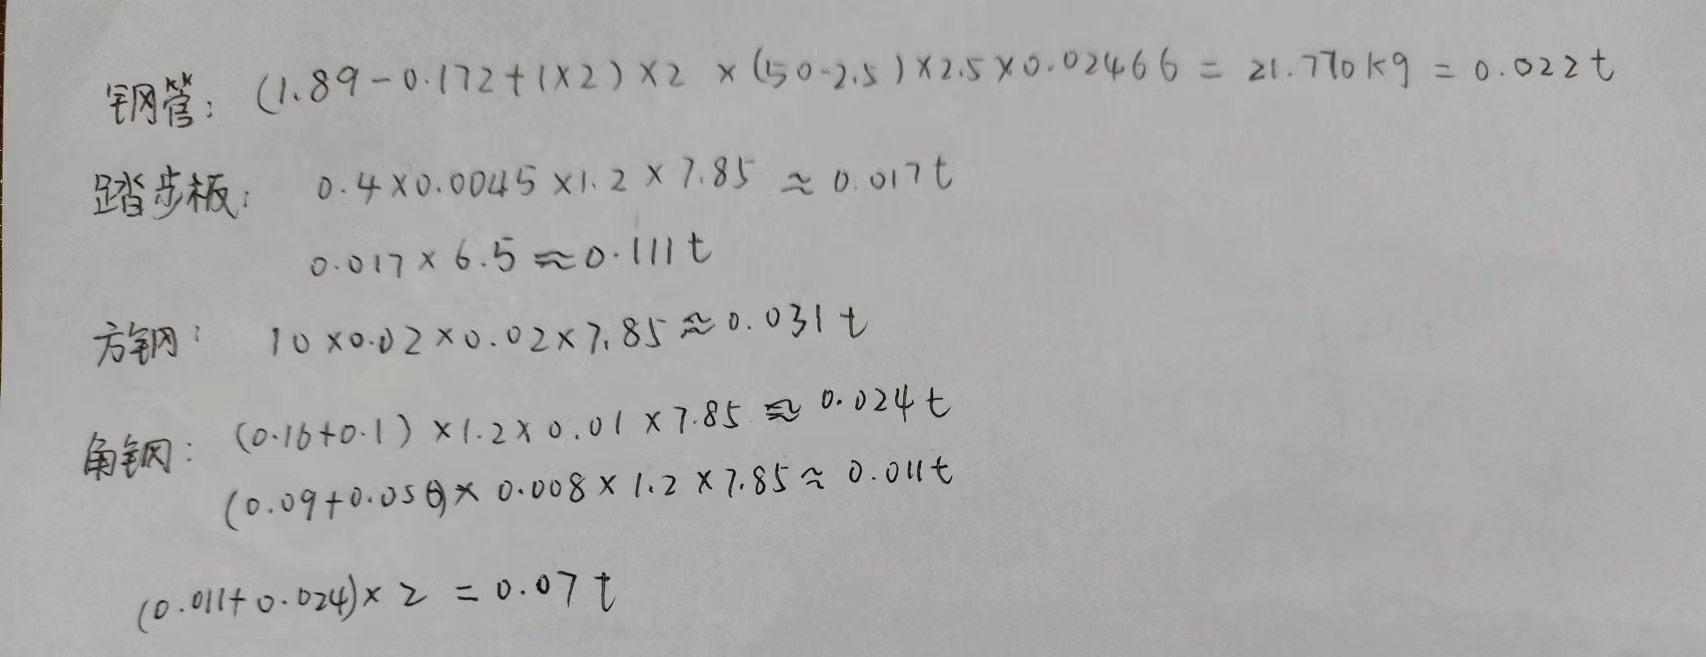 钢管: (1.89-0.172+1×2)×2 ×(50-2.5)×2.5×0.02466 = 21.770kg = 0.022t
踏步板: 0.4×0.0045×1.2×7.85 ≈ 0.017t
0.017×6.5≈0.111t
方钢: 10×0.02×0.02×7.85≈0.031t
角钢: (0.16+0.1)×1.2×0.01×7.85≈0.024t
(0.09+0.056)×0.008×1.2×7.85≈0.011t
(0.011+0.024)×2 = 0.07t